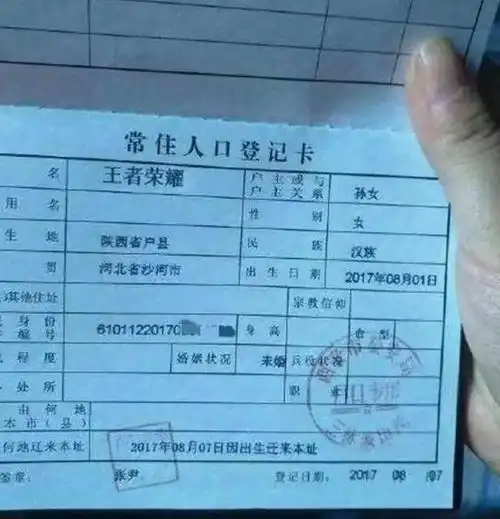 常住人口登记卡
名 王者荣耀 户主或与户主关系 孙女
用名 性别 女
生地 陕西省户县 民族 汉族
贯 河北省沙河市 出生日期 2017年08月01日
其他住址 宗教信仰
身份
编号 61011220170 身高 血型
程度 婚姻状况 未婚 兵役状况
处所 职
由何地
本市(县)
何地迁来本址 2017年08月07日因出生迁来本址
签章: 张尹 登记日期: 2017 08 07